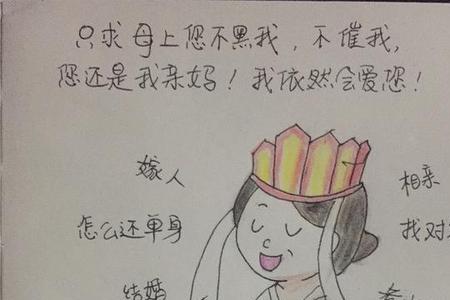 只求母上您不黑我，不催我，
您还是我亲妈！我依然会爱您！
嫁人
相亲
怎么还单身
找对
结婚